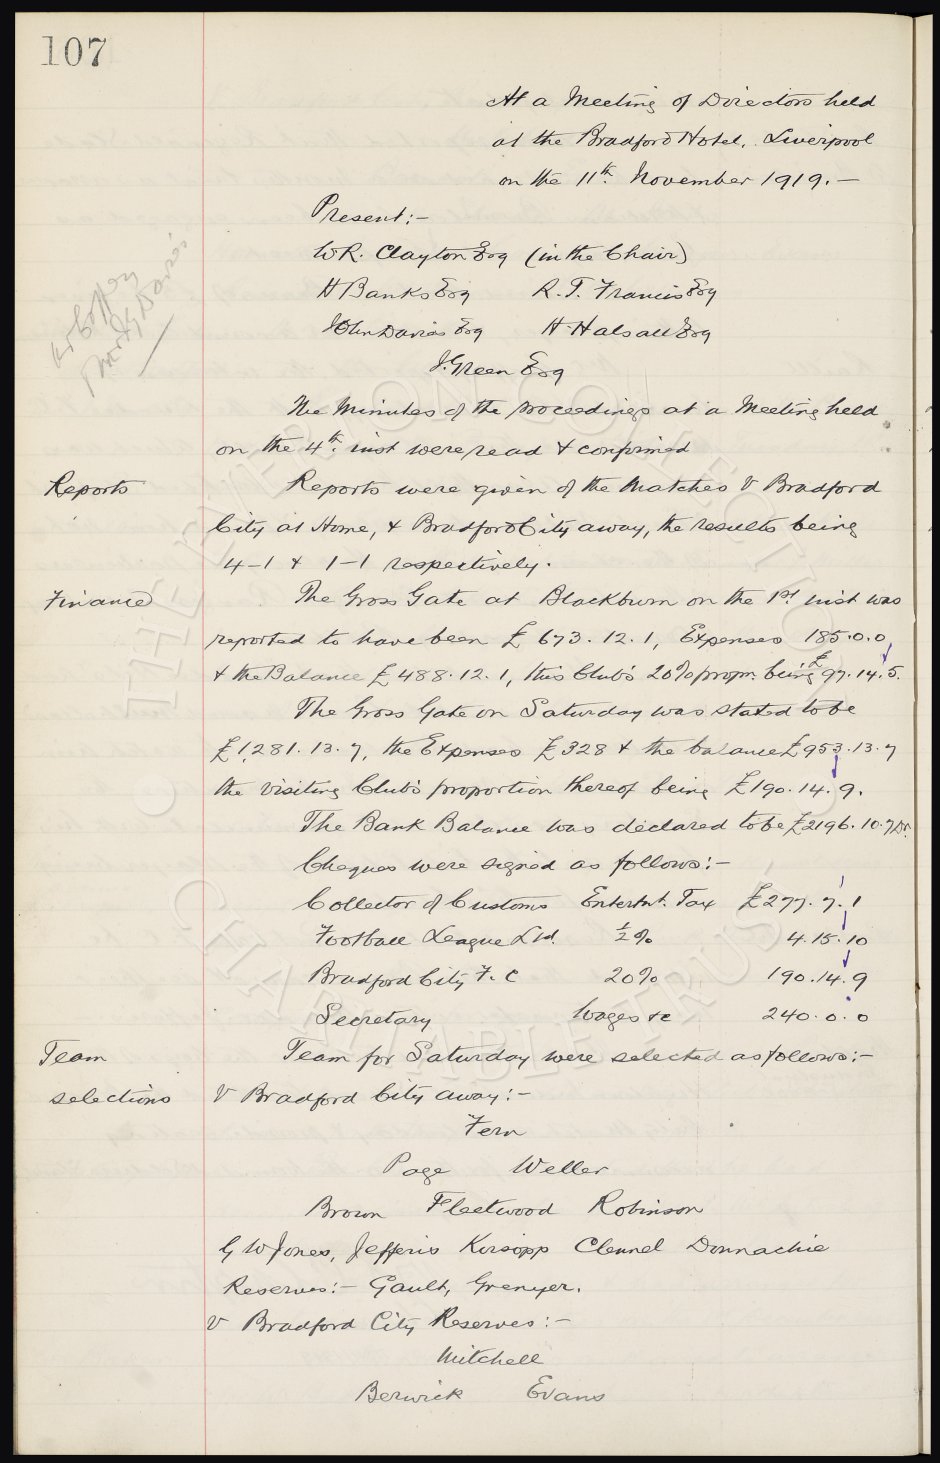 107
At a Meeting of Directors held
at the Bradford Hotel, Liverpool
on the 11th. November 1919. —
Present:—
W.R. Clayton Esq (in the Chair)
H Banks Esq R. T. Francis Esq
John Davies Esq H. Halsall Esq
J. Green Esq
The Minutes of the proceedings at a Meeting held
on the 4th. inst were read & confirmed
Reports Reports were given of the Matches V Bradford
City at Home, & Bradford City away, the results being
4-1 & 1-1 respectively.
Finance The Gross Gate at Blackburn on the 1st inst was
reported to have been £673.12.1, Expenses 185.0.0
& the Balance £488.12.1, this Club's 20% propn. being £97.14.5.
The Gross Gate on Saturday was stated to be
£1,281.13.7, the Expenses £328 & the balance £953.13.7
the visiting Club's proportion thereof being £190.14.9.
The Bank Balance was declared to be £2196.10.7 Dr.
Cheques were signed as follows:—
Collector of Customs Entertnt. Tax £277.7.1
Football League Ltd. ½% 4.15.10
Bradford City F.C 20% 190.14.9
Secretary Wages &c 240.0.0
Team Team for Saturday were selected as follows:—
selections V Bradford City away:—
Fern
Page Weller
Brown Fleetwood Robinson
G W Jones, Jefferis Kirsopp Clennel Donnachie
Reserves:— Gault, Grenyer.
v Bradford City Reserves:—
Mitchell
Berwick Evans
THE EVERTON COLLECTION
CHARITABLE TRUST